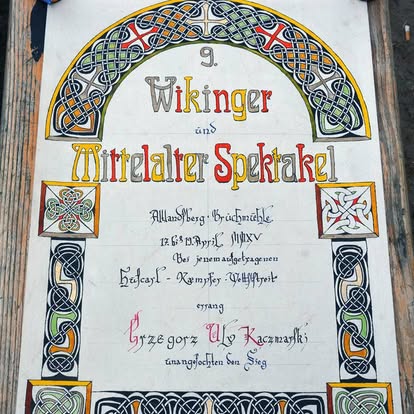 9.
Wikinger
und
Mittelalter Spektakel
Altlandsberg · Bruchmühle
17. bis 19. April
Bei jenem aufgetragenen
Kaempfer - Wettstreit
errang
Grzegorz Ulv Kaczmarski
unangefochten den Sieg